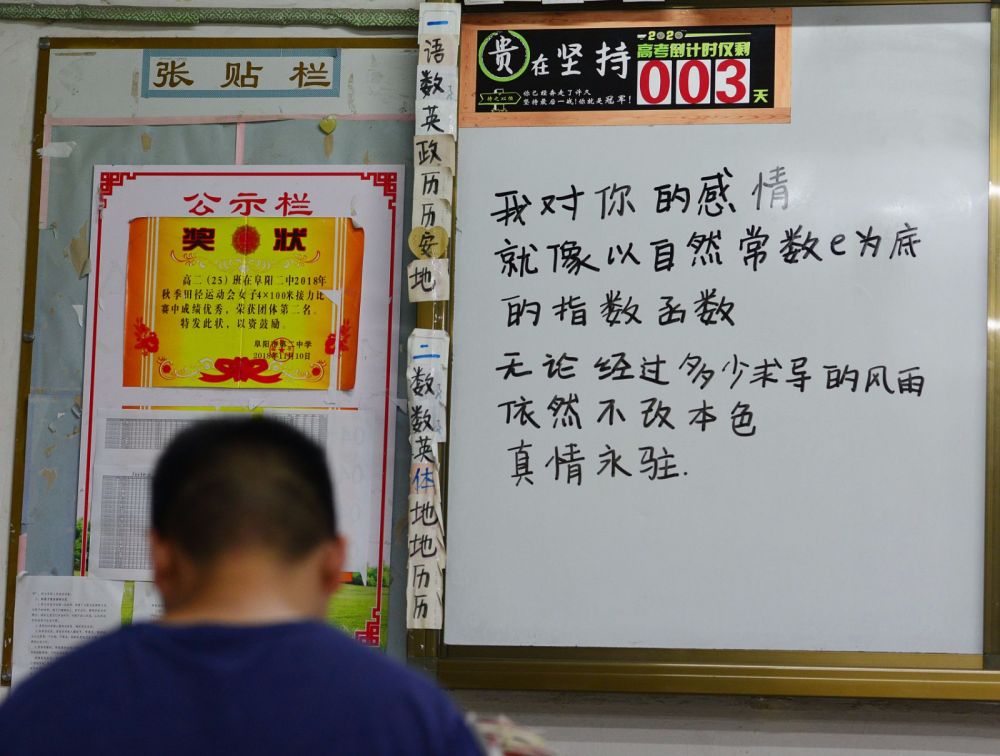 张贴栏
公示栏
奖状
高二（25）班在阜阳二中2018年
秋季田径运动会女子4×100米接力比
赛中成绩优秀，荣获团体第二名。
特发此状，以资鼓励。
阜阳市第二中学
2018年11月10日
一
语
数
英
政
历
历
安
地
二
数
数
英
体
地
地
历
历
贵在坚持
2020
高考倒计时仅剩
003天
持之以恒
你已经奔走了许久
坚持最后一战！你就是冠军！
我对你的感情
就像以自然常数e为底
的指数函数
无论经过多少求导的风雨
依然不改本色
真情永驻.